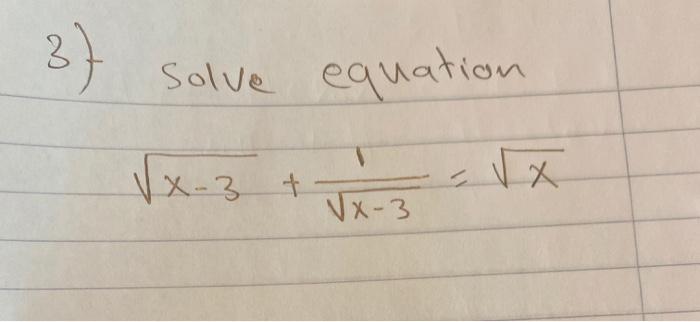 3) Solve equation
√(x-3) + 1/√(x-3) = √x